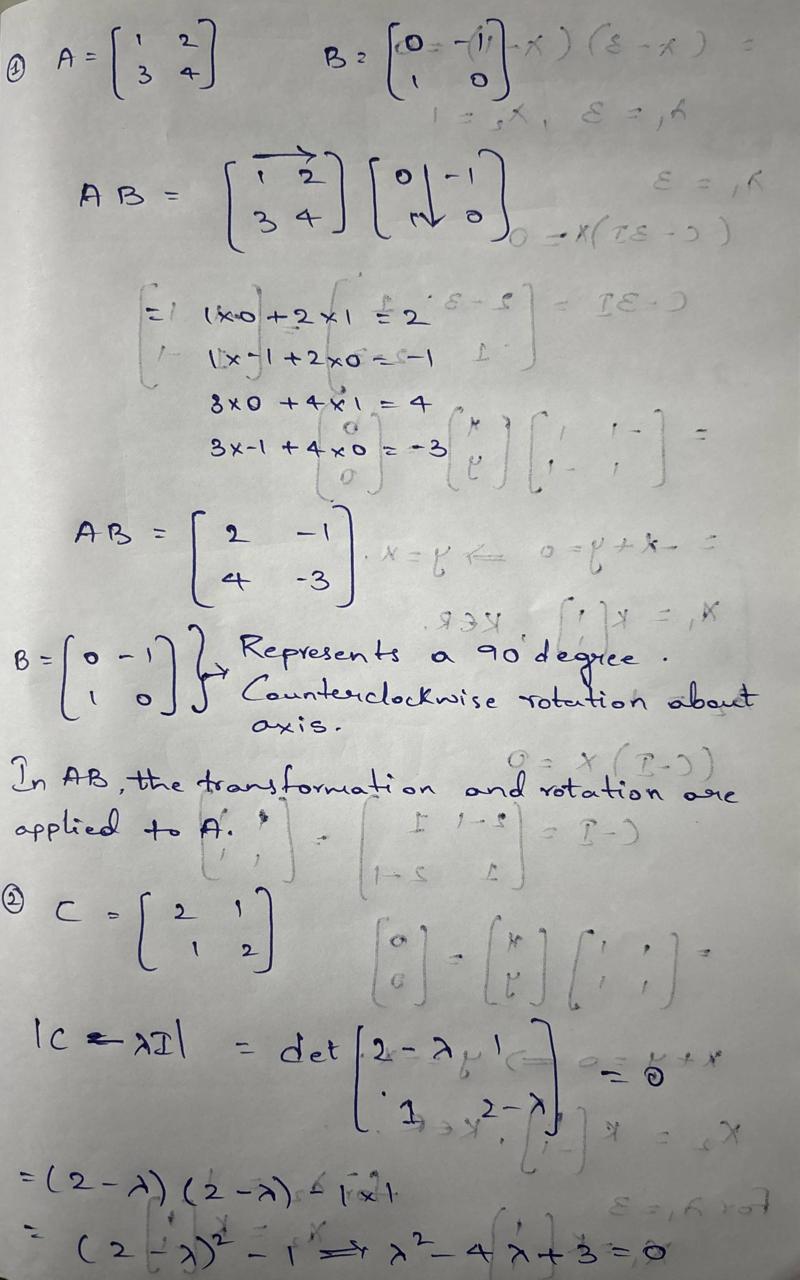 ① A = [1 2 3 4] B = [0 -1 1 0]
AB = [1 2 3 4] [0 -1 1 0]
= 1x0 + 2x1 = 2
1x-1 + 2x0 = -1
3x0 + 4x1 = 4
3x-1 + 4x0 = -3
AB = [2 -1 4 -3]
B = [0 -1 1 0] } → Represents a 90 degree.
Counterclockwise rotation about
axis.
In AB, the transformation and rotation are
applied to A.
② C = [2 1 1 2]
|C - λI| = det [2-λ 1 1 2-λ] = 0
= (2-λ) (2-λ) - 1x1
= (2-λ)² - 1 ⇒ λ² - 4λ + 3 = 0